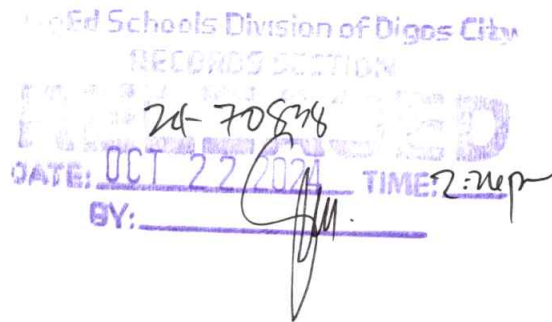 DepEd Schools Division of Digos City
RECORDS SECTION
RELEASED
DATE: OCT 22 2024 TIME:
BY: